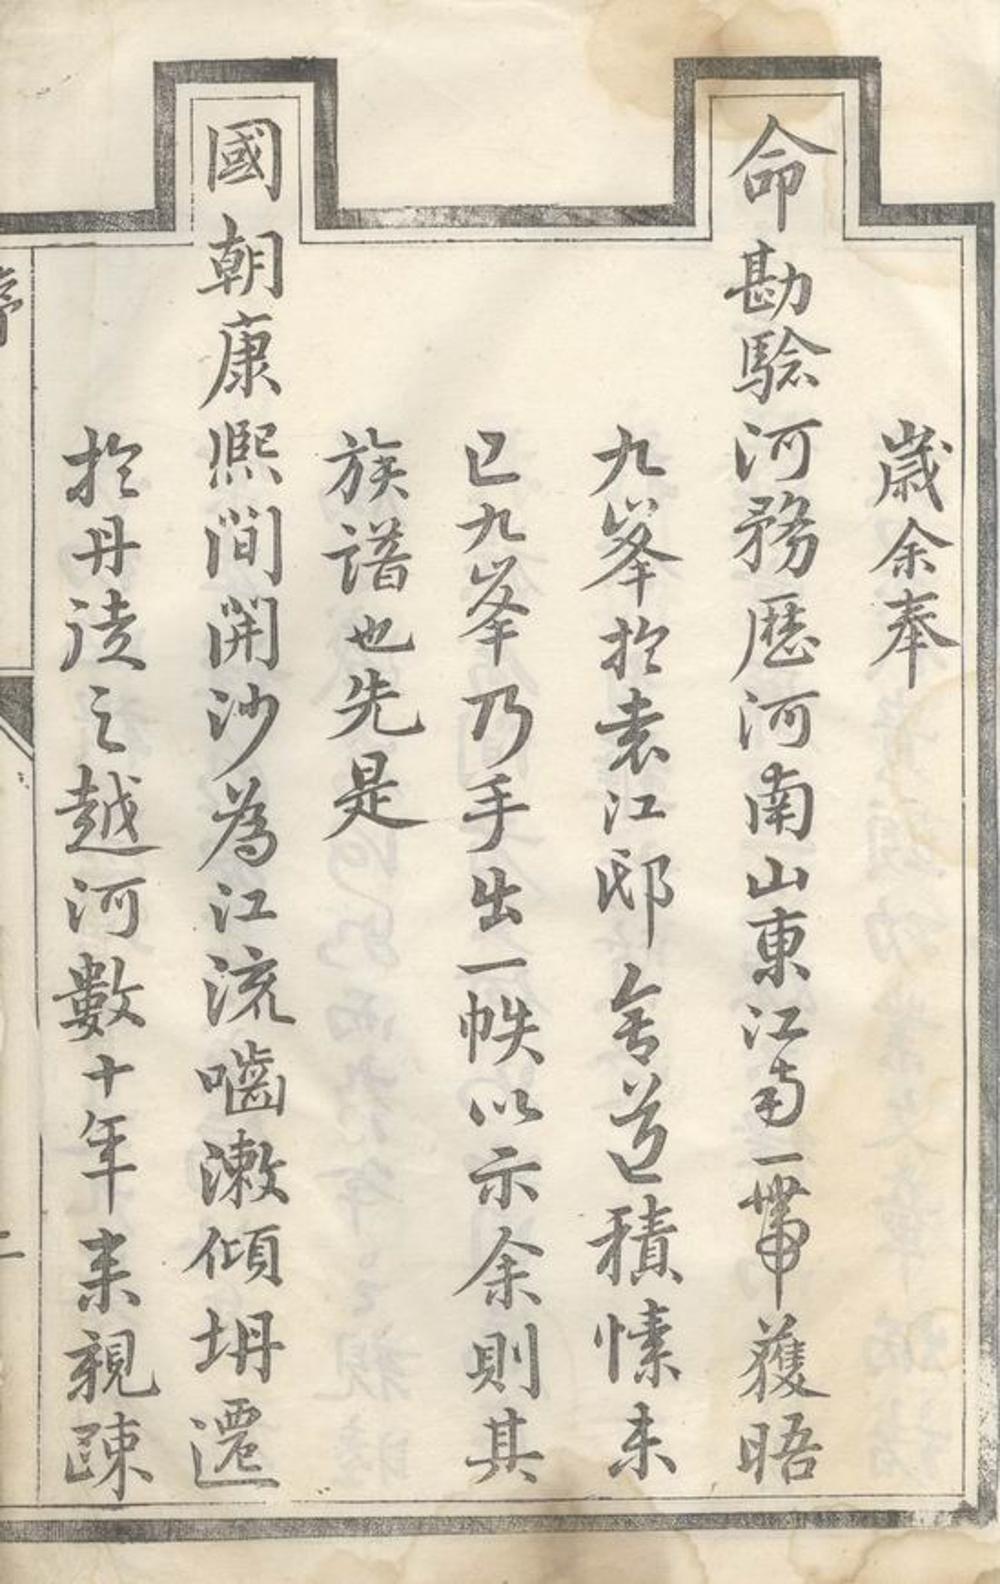 歲余奉
命勘驗河務歷河南山東江南一帶獲晤
九峯於袁江邸舍道積愫未
已九峯乃手出一帙以示余則其
族譜也先是
國朝康熙間開沙為江流嚙漱傾坍遷
於丹徒之越河數十年來親疎
序
二